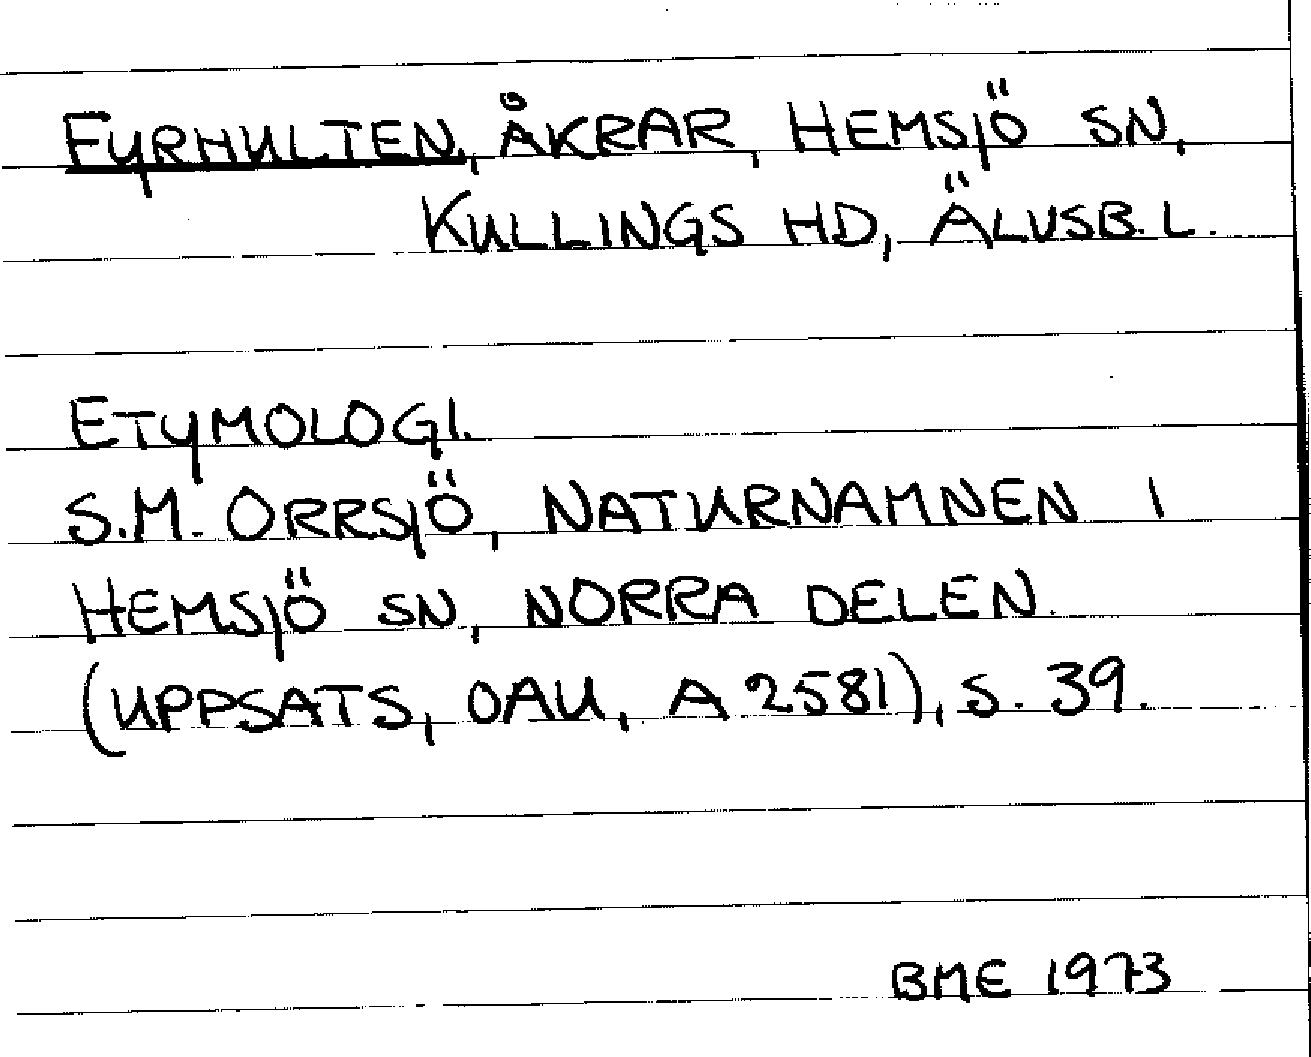 FYRHULTEN, ÅKRAR, HEMSJÖ SN,
KULLINGS HD, ÄLVSB. L.
ETYMOLOGI.
S.M. ORRSJÖ, NATURNAMNEN I
HEMSJÖ SN, NORRA DELEN.
(UPPSATS, OAU, A 2581), S. 39.
BME 1973